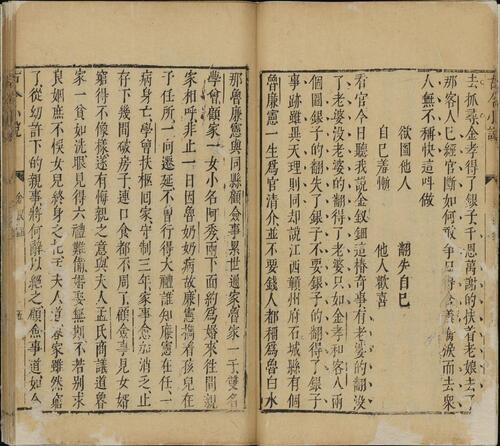 去抓尋金孝得了銀子千恩萬謝的扶着老娘去了
那客人已經官斷如何敢爭只得含羞噙淚而去眾
人無不稱快這叫做
欲圖他人　翻失自己
自己羞慚　他人歡喜
看官今日聽我說金釵鈿這樁奇事有老婆的翻沒
了老婆沒老婆的翻得了老婆只如金孝和客人兩
個圖銀子的翻失了銀子不要銀子的翻得了銀子
事跡雖異天理則同却說江西贛州府石城縣有個
魯廉憲一生爲官清介並不要錢人都稱爲魯白水
那魯廉憲與同縣顧僉事累世通家魯家一子雙名
學曾顧家一女小名阿秀兩下面約爲婚來往間親
家相呼非止一日因魯奶奶病故廉憲攜着孩兒在
于任所一向遷延不曾行得大禮誰知廉憲在任一
病身亡學曾扶柩回家守制三年家事愈加消乏止
存下幾間破房子連口食都不周了顧僉事見女婿
窮得不像樣遂有悔親之意與夫人孟氏商議道魯
家一貧如洗眼見得六禮難備婚娶無期不若別求
良姻庶不悞女兒終身之托孟夫人道魯家雖然窮
了從幼許下的親事將何辭以絕之顧僉事道如今
古今小說